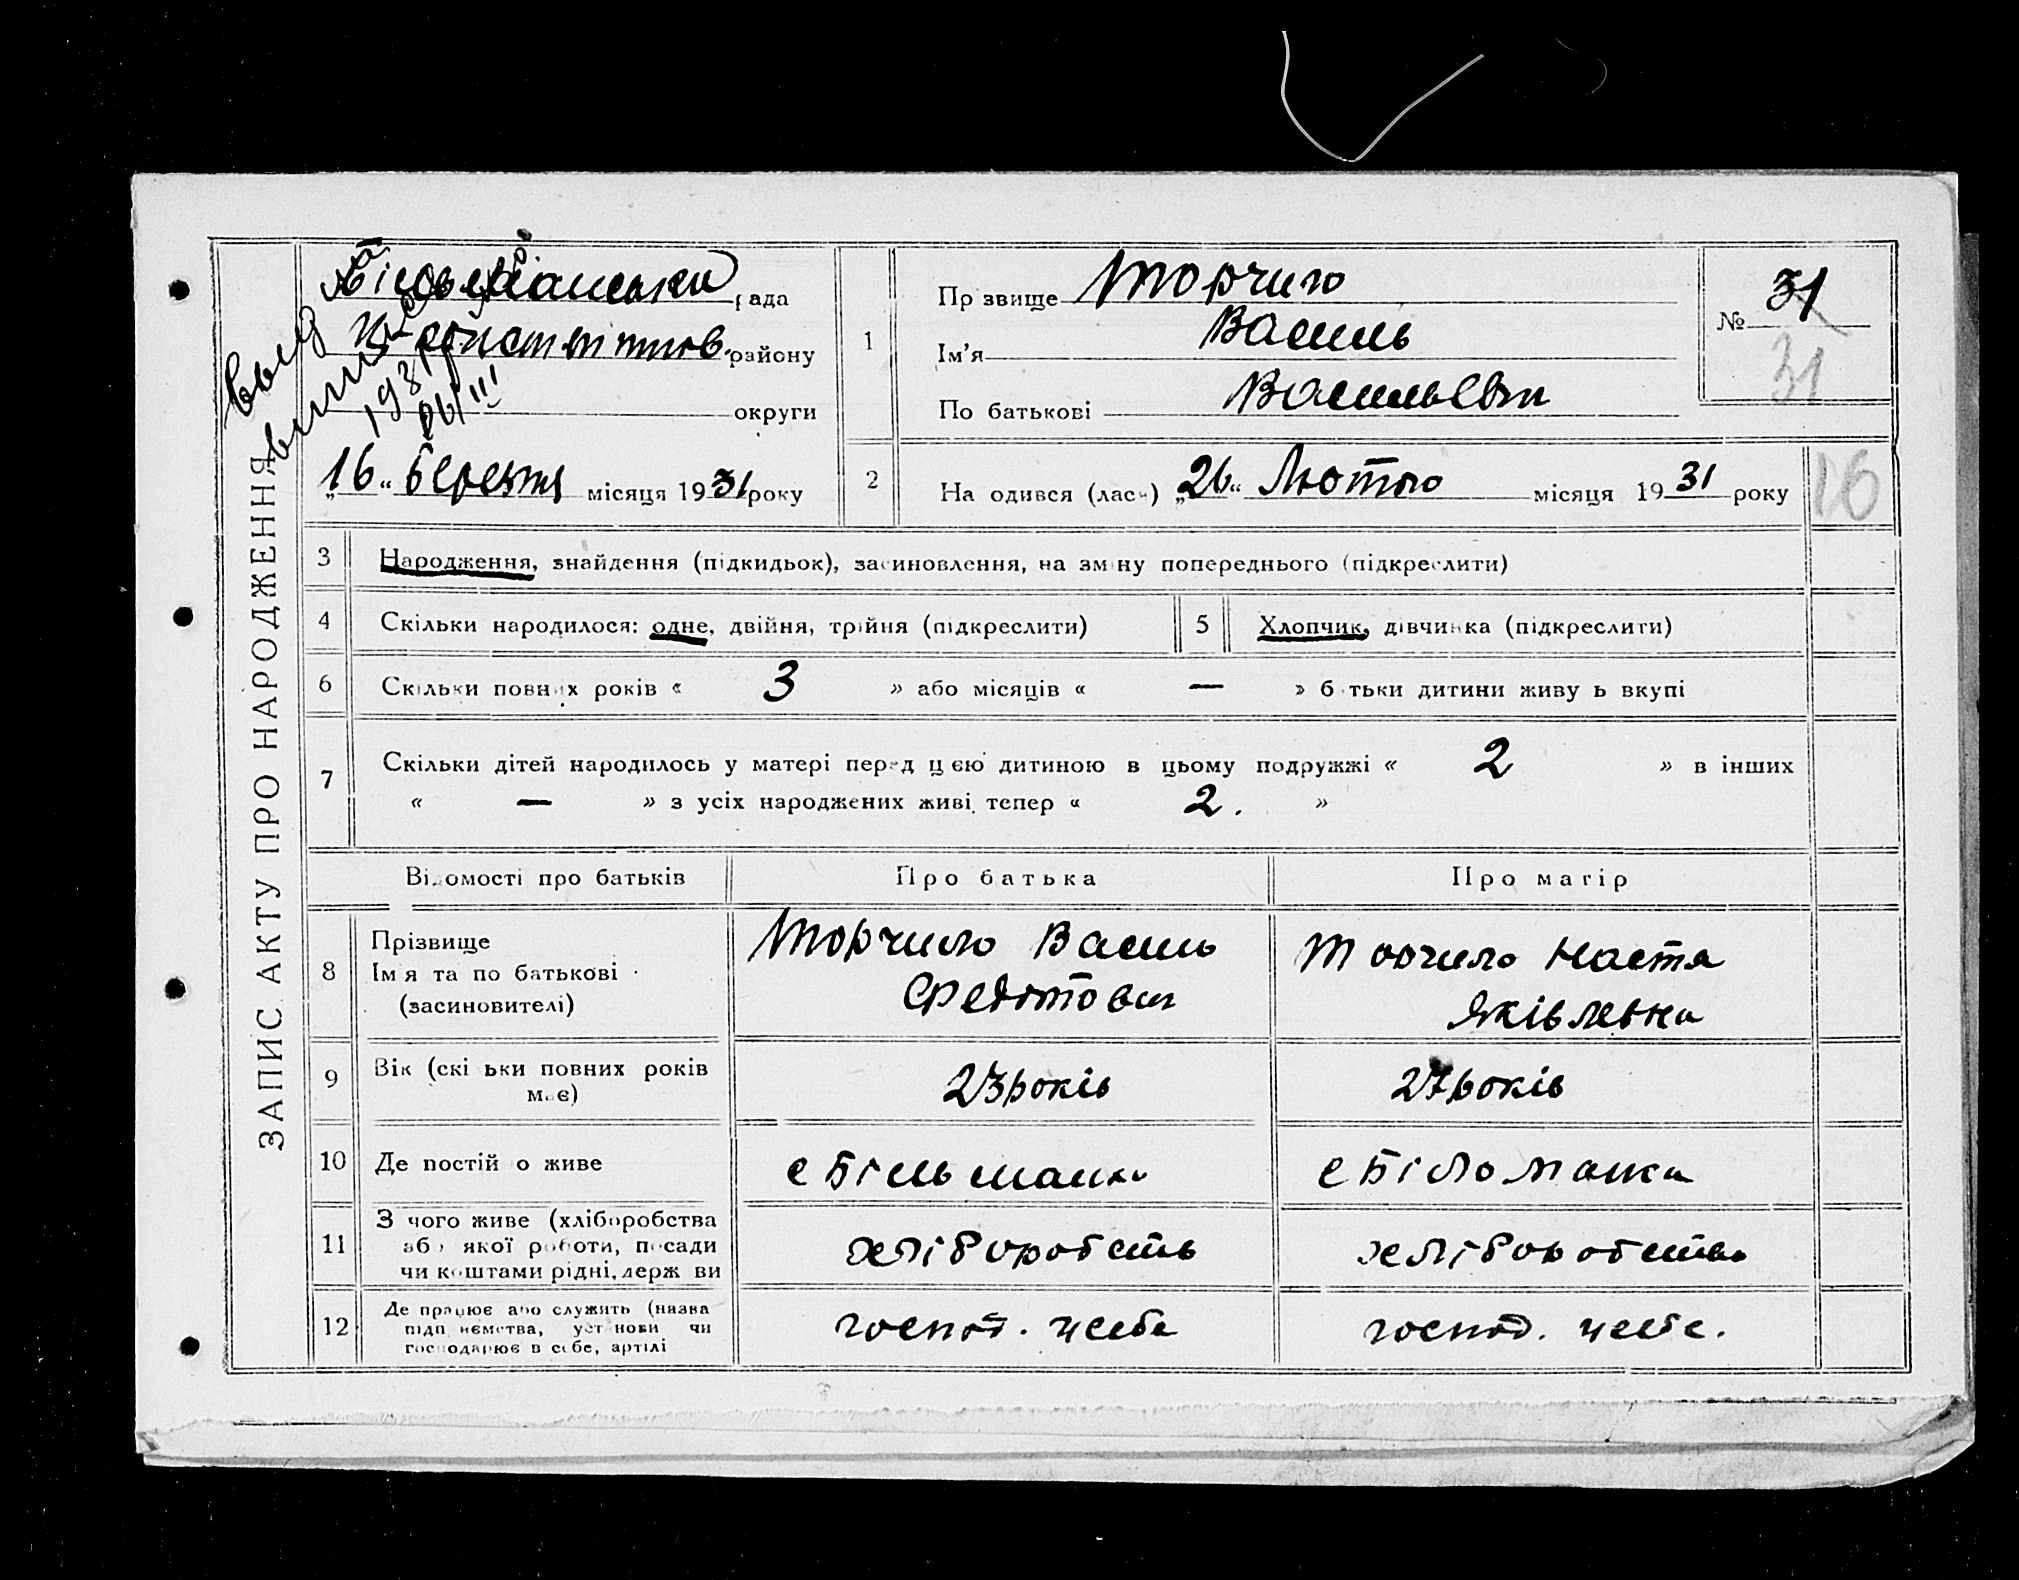 ЗАПИС АКТУ ПРО НАРОДЖЕННЯ
рада
району
округи
„16“ березня місяця 1931 року
1
Прізвище Торчило
Ім'я Василь
По батькові Васильевич
№ 31
31
2
На одився (лась) „26“ Лютого місяця 1931 року
16
3 Народження, знайдення (підкидьок), засиновлення, на зміну попереднього (підкреслити)
4 Скільки народилося: одне, двійня, трійня (підкреслити)
5 Хлопчик, дівчинка (підкреслити)
6 Скільки повних років « 3 » або місяців « — » б тьки дитини живу ь вкупі
7 Скільки дітей народилось у матері перед цією дитиною в цьому подружжі « 2 » в інших
« — » з усіх народжених живі тепер « 2. »
Відомості про батьків Про батька Про матір
8 Прізвище
Ім я та по батькові
(засиновителі)
Торчило Василь
Федотович
Торчило Настя
Яківлевна
9 Вік (скі ьки повних років
має)
23 років
27 років
10 Де постій о живе
с Більманка
с Більманка
11 З чого живе (хліборобства
або якої роботи, посади
чи коштами рідні, держ ви
хліборобств
хліборобства
12 Де працює або служить (назва
підп иємства, установи чи
господарює в себе, артілі
господ. чесбе
господ. чесбе.